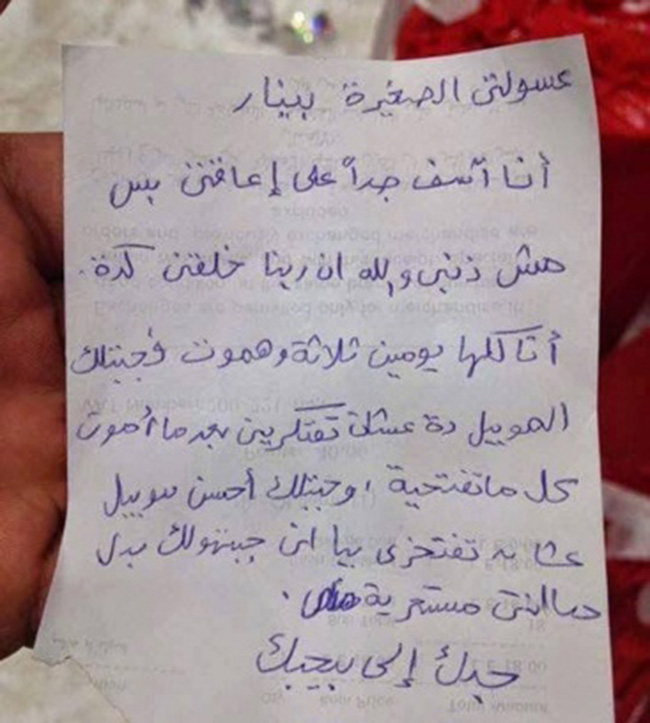 عسولتى الصغيرة بينار
أنا آسف جداً على إعاقتى بس
مش ذنبى والله ان ربنا خلقنى كدة.
أنا كلها يومين ثلاثة وهموت فجبتلك
الموبيل دة عشان تفتكرينى بعد ما أموت
كل ما تفتحية، وجبتلك أحسن موبيل
عشان تفتخرى بيا انى جبتهولك بدل
ما انتى مستعرية منى.
جدك إلى بيحبك